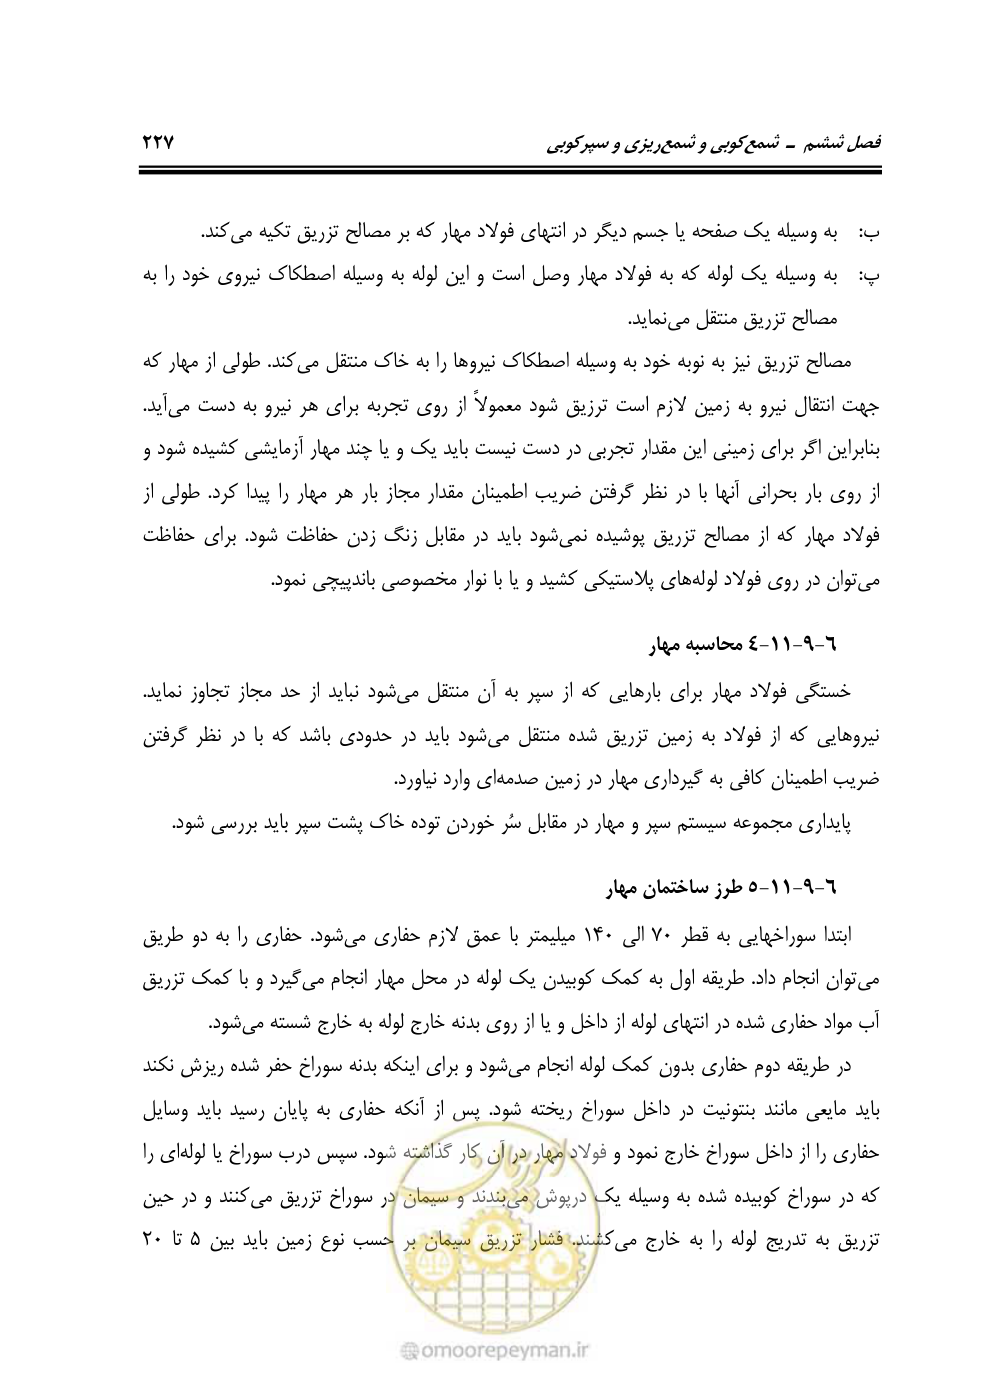 فصل ششم ـ شمع‌کوبی و شمع‌ریزی و سپرکوبی ۲۲۷
ب: به وسیله یک صفحه یا جسم دیگر در انتهای فولاد مهار که بر مصالح تزریق تکیه می‌کند.
پ: به وسیله یک لوله که به فولاد مهار وصل است و این لوله به وسیله اصطکاک نیروی خود را به
مصالح تزریق منتقل می‌نماید.
مصالح تزریق نیز به نوبه خود به وسیله اصطکاک نیروها را به خاک منتقل می‌کند. طولی از مهار که
جهت انتقال نیرو به زمین لازم است ترزیق شود معمولاً از روی تجربه برای هر نیرو به دست می‌آید.
بنابراین اگر برای زمینی این مقدار تجربی در دست نیست باید یک و یا چند مهار آزمایشی کشیده شود و
از روی بار بحرانی آنها با در نظر گرفتن ضریب اطمینان مقدار مجاز بار هر مهار را پیدا کرد. طولی از
فولاد مهار که از مصالح تزریق پوشیده نمی‌شود باید در مقابل زنگ زدن حفاظت شود. برای حفاظت
می‌توان در روی فولاد لوله‌های پلاستیکی کشید و یا با نوار مخصوصی باندپیچی نمود.
۶-۹-۱۱-۴ محاسبه مهار
خستگی فولاد مهار برای بارهایی که از سپر به آن منتقل می‌شود نباید از حد مجاز تجاوز نماید.
نیروهایی که از فولاد به زمین تزریق شده منتقل می‌شود باید در حدودی باشد که با در نظر گرفتن
ضریب اطمینان کافی به گیرداری مهار در زمین صدمه‌ای وارد نیاورد.
پایداری مجموعه سیستم سپر و مهار در مقابل سُر خوردن توده خاک پشت سپر باید بررسی شود.
۶-۹-۱۱-۵ طرز ساختمان مهار
ابتدا سوراخهایی به قطر ۷۰ الی ۱۴۰ میلیمتر با عمق لازم حفاری می‌شود. حفاری را به دو طریق
می‌توان انجام داد. طریقه اول به کمک کوبیدن یک لوله در محل مهار انجام می‌گیرد و با کمک تزریق
آب مواد حفاری شده در انتهای لوله از داخل و یا از روی بدنه خارج لوله به خارج شسته می‌شود.
در طریقه دوم حفاری بدون کمک لوله انجام می‌شود و برای اینکه بدنه سوراخ حفر شده ریزش نکند
باید مایعی مانند بنتونیت در داخل سوراخ ریخته شود. پس از آنکه حفاری به پایان رسید باید وسایل
حفاری را از داخل سوراخ خارج نمود و فولاد مهار در آن کار گذاشته شود. سپس درب سوراخ یا لوله‌ای را
که در سوراخ کوبیده شده به وسیله یک درپوش می‌بندند و سیمان در سوراخ تزریق می‌کنند و در حین
تزریق به تدریج لوله را به خارج می‌کشند. فشار تزریق سیمان بر حسب نوع زمین باید بین ۵ تا ۲۰
امور پیمان
omoorepeyman.ir